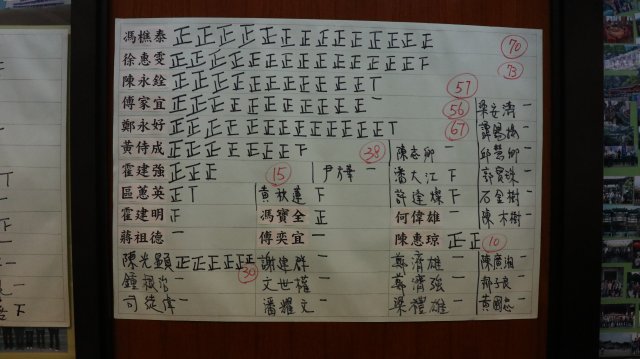 馮樵泰 正正正正正正正正正正正正正正 70
徐惠雯 正正正正正正正正正正正正正正下 73
陳永銓 正正正正正正正正正正正丅 57
傅家宜 正正正正正正正正正正正一 56 梁安濤一
鄭永好 正正正正正正正正正正正正正丅 67
黃侍成 正正正正正正正下 38 陳志卿一 邱慧卿一
霍建強 正正正 15 尹彥一 潘大江下
區蕙英 正丅 黃秋蓮下 許達燦下 石金樹一
霍建明 正 馮寶全 正 何偉雄一 陳木樹一
蔣祖德一 傅奕宜一 陳惠琼 正正 10
陳光顯 正正正正正正 30 謝建群一 鄭濟雄一 陳廣湘一
文世權一 鄭濟強一 鄭子良一
司徒偉一 潘耀文一 梁禮雄一 黃國忠一